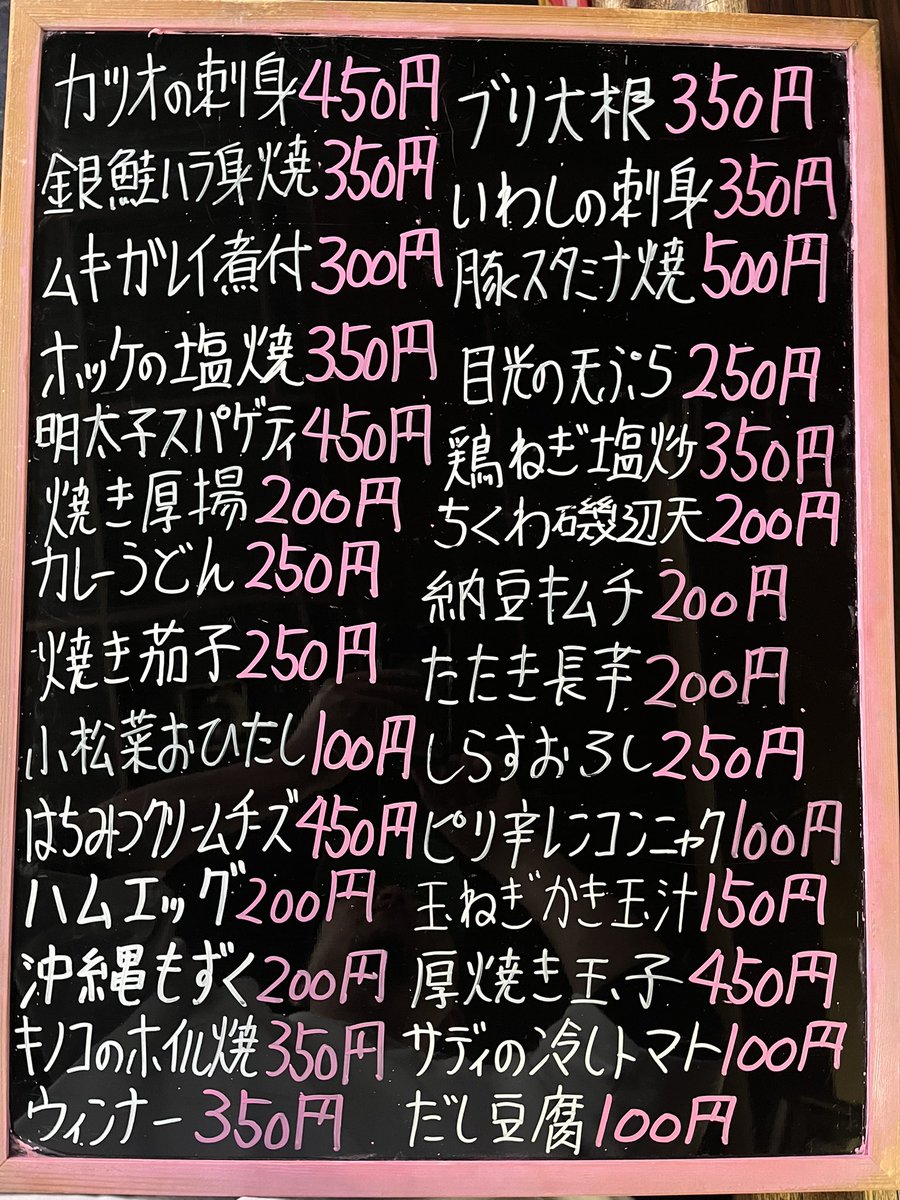 カツオの刺身450円
銀鮭ハラ身焼350円
ムキガレイ煮付300円
ホッケの塩焼350円
明太子スパゲティ450円
焼き厚場200円
カレーうどん250円
焼き茄子250円
小松菜おひたし100円
はちみつクリームチーズ450円
ハムエッグ200円
沖縄もずく200円
キノコのホイル焼350円
ウィンナー350円
ブリ大根350円
いわしの刺身350円
豚スタミナ焼500円
目光の天ぷら250円
鶏ねぎ塩炒350円
ちくわ磯辺天200円
納豆キムチ200円
たたき長芋200円
しらすおろし250円
ピリ辛レンコンニャク100円
玉ねぎかき玉汁150円
厚焼き玉子450円
サディの冷しトマト100円
だし豆腐100円